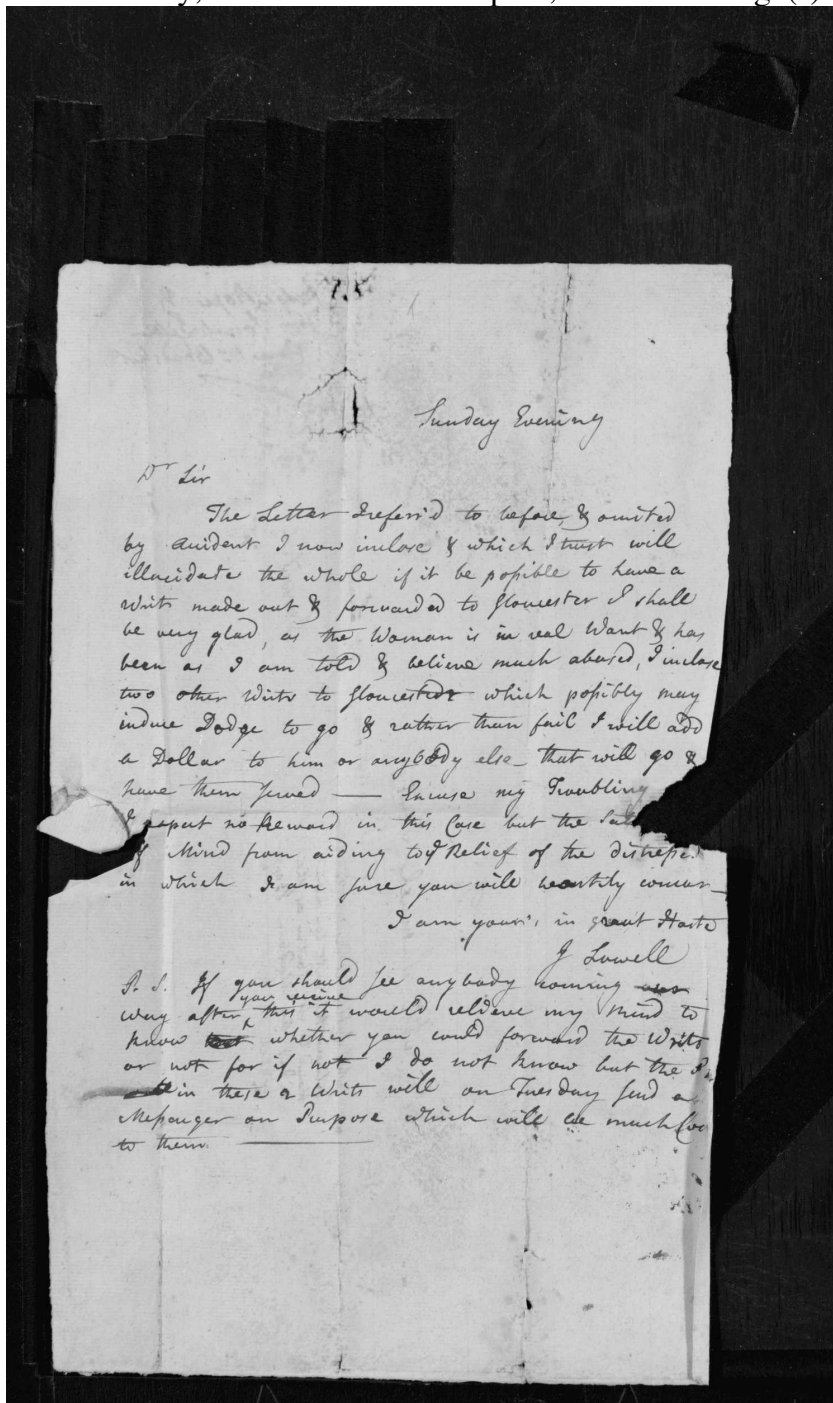 Sunday Evening
Dr Sir
The Letter I referr'd to before, & omited
by Accident I now inclose & which I trust will
illucidate the whole if it be possible to have a
Writ made out & forwarded to Gloucester I shall
be very glad, as the Woman is in real Want & has
been as I am told & believe much abused, I inclose
two other Writs to Gloucester which possibly may
induce Dodge to go & rather than fail I will add
a Dollar to him or anybody else – that will go &
have them served — Excuse my Troubling
I expect no Reward in this Case but the
of Mind from aiding to ye Relief of the distress'd
in which I am sure you will heartily concur –
I am yours, in great Haste
J Lowell
P. S. If you should see anybody coming our
way after you receive this it would relieve my mind to
know whether you could forward the Writs
or not for if not I do not know but the
in these 2 Writs will on Tuesday send a
Messenger on Purpose which will be much
to them.